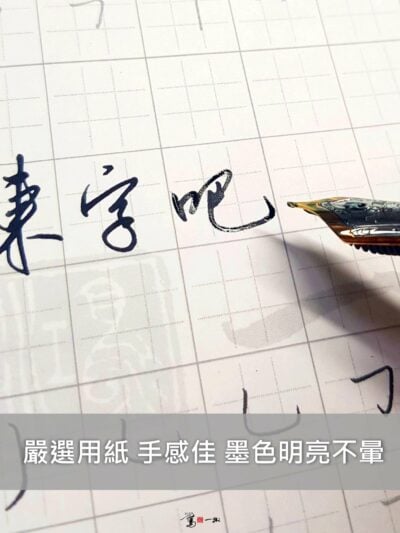 練字吧
嚴選用紙 手感佳 墨色明亮不暈